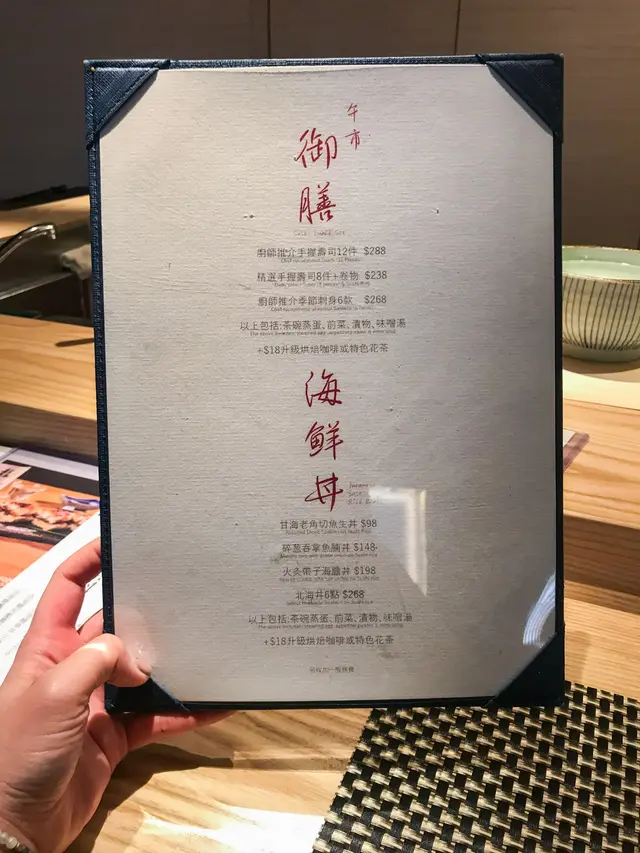 午市
御膳
廚師推介手握壽司12件 $288
精選手握壽司8件+卷物 $238
廚師推介季節刺身6款 $268
以上包括:茶碗蒸蛋、前菜、漬物、味噌湯
+$18升級烘焙咖啡或特色花茶
海鮮丼
甘海老角切魚生丼 $98
碎葱吞拿魚腩丼 $148
火炙帶子海膽丼 $198
北海丼6點 $268
以上包括:茶碗蒸蛋、前菜、漬物、味噌湯
+$18升級烘焙咖啡或特色花茶
另收加一服務費